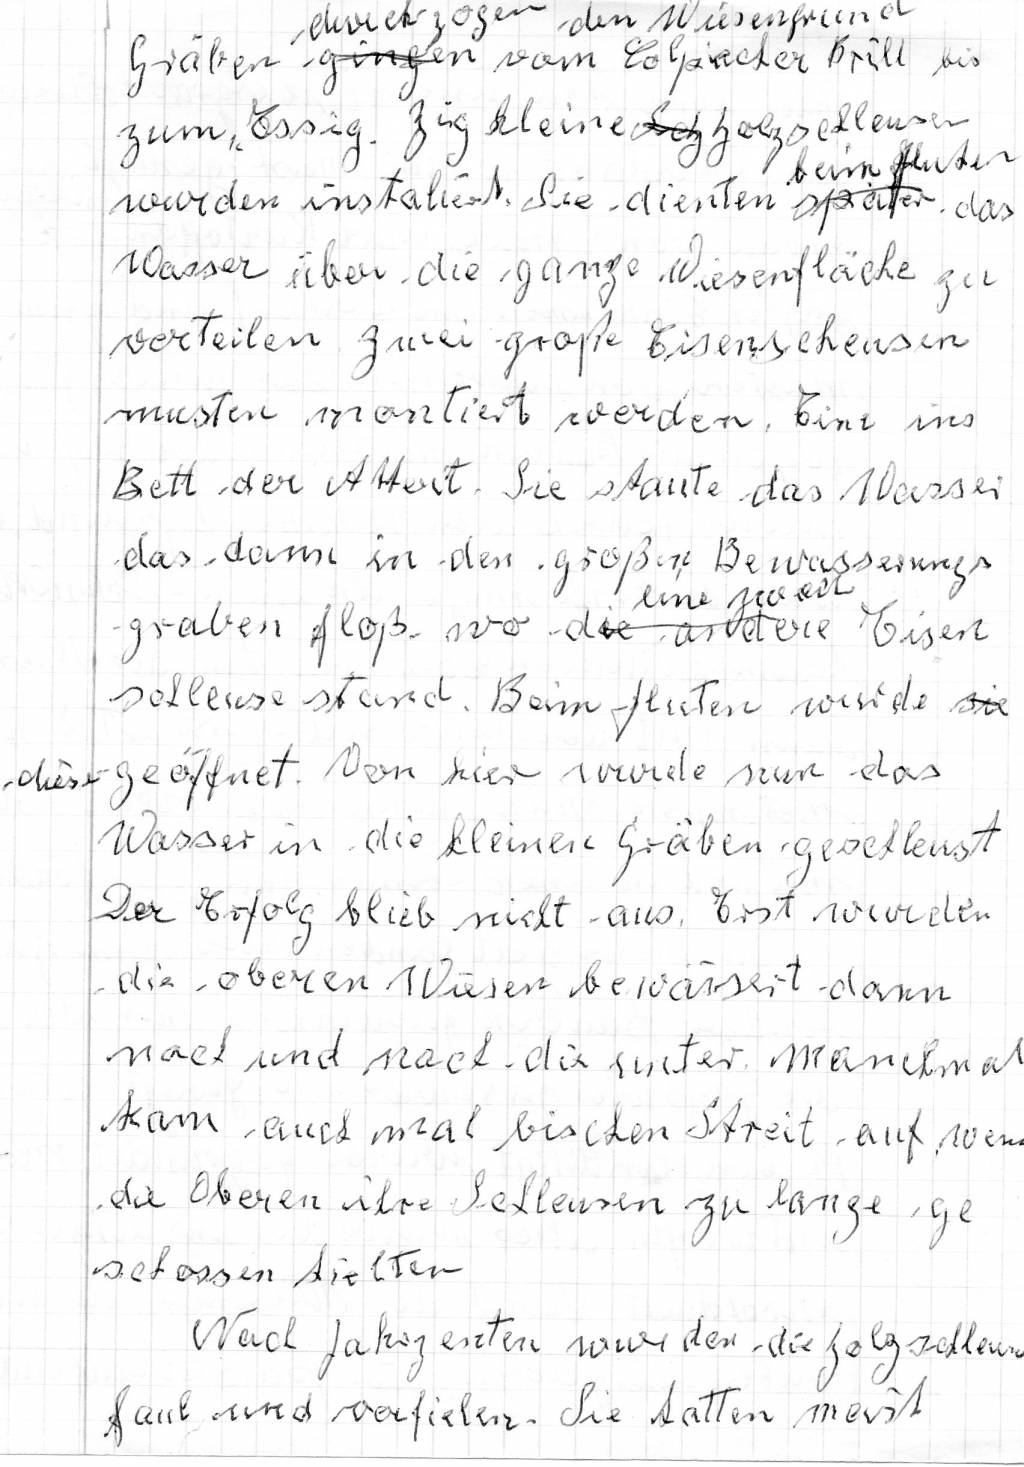 durchzogen den Wiesengrund
Gräben gingen vom Colpacher Brill bis
zum „Essig. Zig kleine Sch Holzschleusen
beim fluten
wurden instaliert. Sie dienten später das
Wasser über die ganze Wiesenfläche zu
verteilen Zwei große Eisenschleusen
musten montiert werden. Eine ins
Bett der Attert. Sie staute das Wasser
das dann in den großen Bewässerungs
eine zweite
graben floß wo die andere Eisen
schleuse stand. Beim fluten wurde sie
diese geöffnet. Von hier wurde nun das
Wasser in die kleinen Gräben geschleust
Der Erfolg blieb nicht aus. Erst wurden
die oberen Wiesen bewässert dann
nach und nach die unter. Manchmal
kam auch mal bischen Streit auf wenn
die Oberen ihre Schleusen zu lange ge
schossen hielten
Nach Jahrzenten wurden die Holzschleusen
faul und verfielen. Sie hatten meist